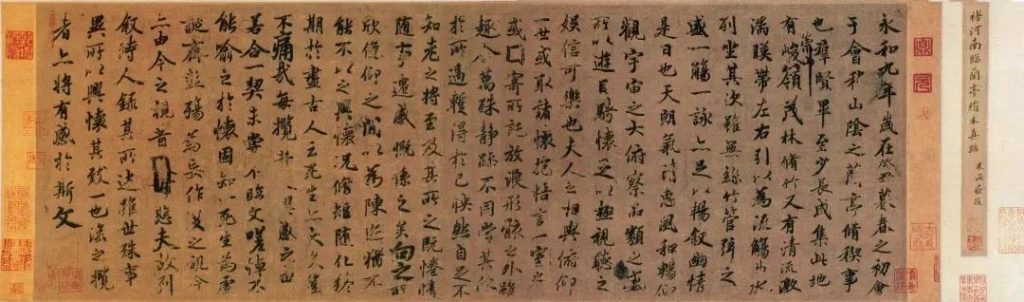 褚河南臨蘭亭絹本真跡
永和九年歲在癸丑暮春之初會
于會稽山陰之蘭亭脩稧事
也群賢畢至少長咸集此地
有峻嶺茂林脩竹又有清流激
湍暎帶左右引以為流觴曲水
列坐其次雖無絲竹管弦之
盛一觴一詠亦足以暢敘幽情
是日也天朗氣清惠風和暢仰
觀宇宙之大俯察品類之盛
所以遊目騁懷足以極視聽之
娛信可樂也夫人之相與俯仰
一世或取諸懷抱悟言一室之
或因寄所託放浪形骸之外雖
趣舍萬殊靜躁不同當其欣
於所遇蹔得於己怏然自足不
知老之將至及其所之既惓情
隨事遷感慨係之矣向之所
欣俛仰之閒以為陳迹猶不
能不以之興懷況脩短隨化終
期於盡古人云死生亦大矣豈
不痛哉每攬昔人興感之由
若合一契未嘗不臨文嗟悼不
能喻之於懷固知一死生為虛
誕齊彭殤為妄作後之視今
亦由今之視昔悲夫故列
敘時人錄其所述雖世殊事
異所以興懷其致一也後之攬
者亦將有感於斯文